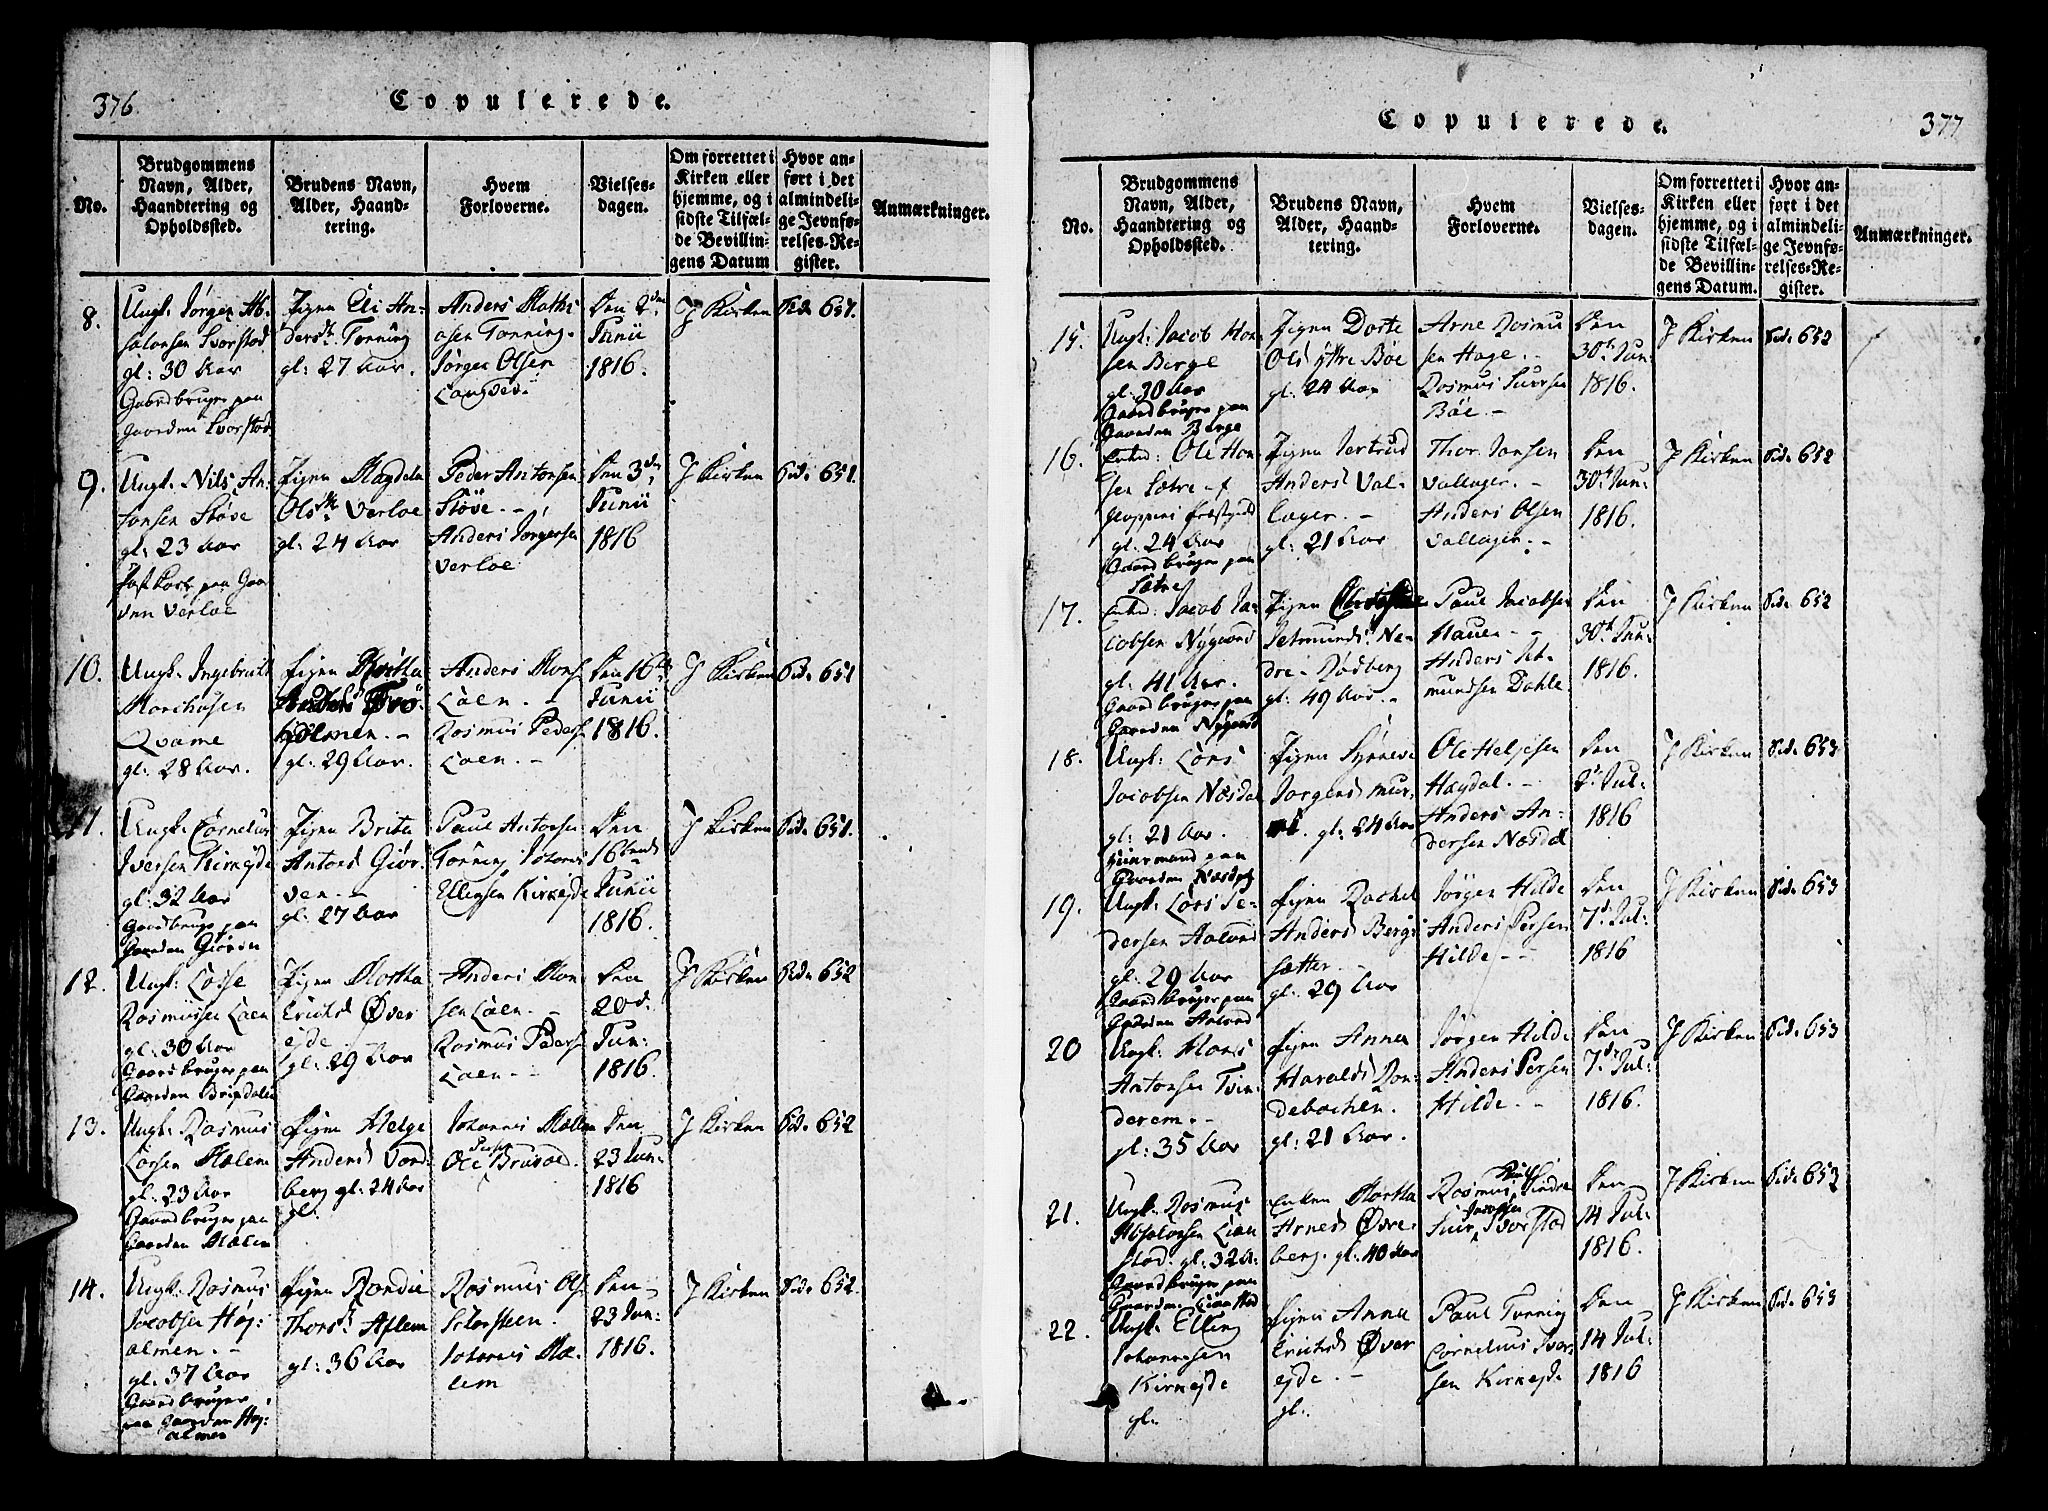 376.
Copulerede.
No.
Brudgommens
Navn, Alder,
Haandtering og
Opholdssted.
Brudens Navn,
Alder, Haand-
tering.
Hvem
Forloverne.
Vielses-
dagen.
Om forrettet i
Kirken eller
hjemme, og i
sidste Tilfæl-
de Bevillin-
gens Datum
Hvor an-
ført i det
almindeli-
ge Jevnfø-
relses-Re-
gister.
Anmærkninger.
8.
Ungk. Jørgen Ab-
salonsen Svorstad
gl: 30 Aar
Gaardbruger paa
Gaarden Svorstad
Pigen Eli An-
dersd. Tonning
gl: 27 Aar.
Anders Mathi
asen Tonning.
Jørgen Olsen
Langsæt.
Den 2den
Junii
1816.
J Kirken
Sid. 651.
9.
Ungk. Nils An-
tonsen Støve
gl: 23 Aar
paa Gaar
den Verloe
Pigen Magdela
Olsd. Verloe
gl: 24 Aar
Peder Antonsen
Støve. -
Anders Jørgensen
Verloe
Den 3den
Junii
1816
J Kirken
Sid. 651.
10.
Ungk. Ingebrikt
Marchusen
Qvame
gl: 28 Aar.
Pigen Martha
Anders
holmen. -
gl: 29 Aar.
Anders Mons
Loen. -
Rasmus Peders
Loen. -
Den 16de
Junii
1816.
J Kirken
Sid. 651
11.
Ungk. Cornelius
Iversen Kirkejde
gl: 32 Aar
Gaardbruger paa
Gaarden Giørven
Pigen Brita
Antons Giør-
ven. -
gl: 27 Aar
Paul Antonsen
Tonning Johannes
Ellingsen Kirkejde
Den
16tende
Junii
1816.
J Kirken
Sid. 651.
12.
Ungk: Lasse
Rasmusen Loen
gl: 30 Aar
Gaardbruger paa
Gaarden Brigsdalen
Pigen Martha
Erichsd Øver
ejde.
gl: 29 Aar
Anders Mon
sen Loen. -
Rasmus Peders
Loen. -
Den
20d.
Jun:
1816.
J Kirken
Sid. 652
13.
Ungk. Rasmus
Larsen Mælem
gl: 23 Aar
Gaardbruger paa
Gaarden Mælem
Pigen Helge
Andersd Vard
berg gl: 24 Aar
gl.
Johannes Mælem
Ole Bruvold.
Den
23 Jun:
1816
J Kirken
Sid. 652
14.
Ungk. Rasmus
Jacobsen Høj:
almen. -
gl: 37 Aar
Gaardbruger
paa Gaarden Høj:
almen
Pigen Randie
Thorsd. Aflem
gl: 36 Aar
Rasmus Ols
Storsteen.
Johannes Mæ-
lem
Den
23 Jun:
1816.
J Kirken
Sid. 652.
377
Copulerede.
No.
Brudgommens
Navn, Alder,
Haandtering og
Opholdssted.
Brudens Navn,
Alder, Haand-
tering.
Hvem
Forloverne.
Vielses-
dagen.
Om forrettet i
Kirken eller
hjemme, og i
sidste Tilfæl-
de Bevillin-
gens Datum.
Hvor an-
ført i det
almindeli-
ge Jevnfø-
relses-Re-
gister.
Anmærkninger.
15.
Ungk: Jacob Han
sen Berge
gl: 30 Aar
Gaardbruger paa
Gaarden Berge
Pigen Dorte
Olsd Yttre Bøe
gl: 24 Aar
Arne Rasmu
sen Hage. -
Rasmus Siversen
Bøe -
Den
30te Jun:
1816.
J Kirken
Sid. 652
16.
Enkd: Ole Han
sen Sætre
gl: 24 Aar
Gaardbruger paa
Sætre
Pigen Jertrud
Andersd Val-
lager. -
gl: 21 Aar
Thor Jonsen
Vallager. -
Anders Olsen
Vallager. -
Den
30te Jun:
1816.
J Kirken
Sid. 652
17.
Enkd: Jacob Ja-
cobsen Nygaard
gl: 41 Aar.
Gaardbruger paa
Gaarden Nygaard
Pigen
Jetmunds Ne-
dre-Rødberg
gl: 49 Aar. -
Paul Jacobsen
Hauen -
Anders Jet-
mundsen Dahle.
Den
30te Jun:
1816.
J Kirken
Sid. 652
18.
Ungk: Lars
Jacobsen Næsdal
gl: 21 Aar.
Huusmand paa
Gaarden Næsdal
Pigen Synneve
Jørgens Mur-
gl: 24 Aar
Ole Helgesen
Hagdal. -
Anders An-
dersen Næsdal
Den
2. Jul:
1816
J Kirken
Sid. 653
19.
Ungk: Lars Pe-
dersen Aaland
gl: 29 Aar
Gaardbruger paa
Gaarden Aaland
Pigen Rachel
Andersd Bergs
sætter. -
gl: 29 Aar
Jørgen Hilde
Anders Persen
Hilde. -
Den
7d. Jul:
1816
J Kirken
Sid. 653
20
Ungk: Mons
Antonsen Tvin-
derem. -
gl: 35 Aar
Pigen Anna
Haralds Ron-
debachen.
gl: 21 Aar.
Jørgen Hilde
Anders Persen
Hilde. -
Den
7d. Jul:
1816.
J Kirken
Sid. 653
21.
Ungk. Rasmus
Absalonsen Lian
stad. gl: 32 A:
Gaardbruger paa
Gaarden Lianstad
Enken Martha
Arnesd Øvre
berg. gl: 40 Aar
Rasmus
Siur Svorstad
Den
14 Jul:
1816.
J Kirken
Sid. 653
22.
Ungk: Elling
Johannesen
Kirkejde
gl.
Pigen Anna
Erichsd Øver
ejde. -
gl.
Paul Tonning
Cornelius Iver-
sen Kirkejde
Den
14 Jul:
1816
J Kirken
Sid. 653